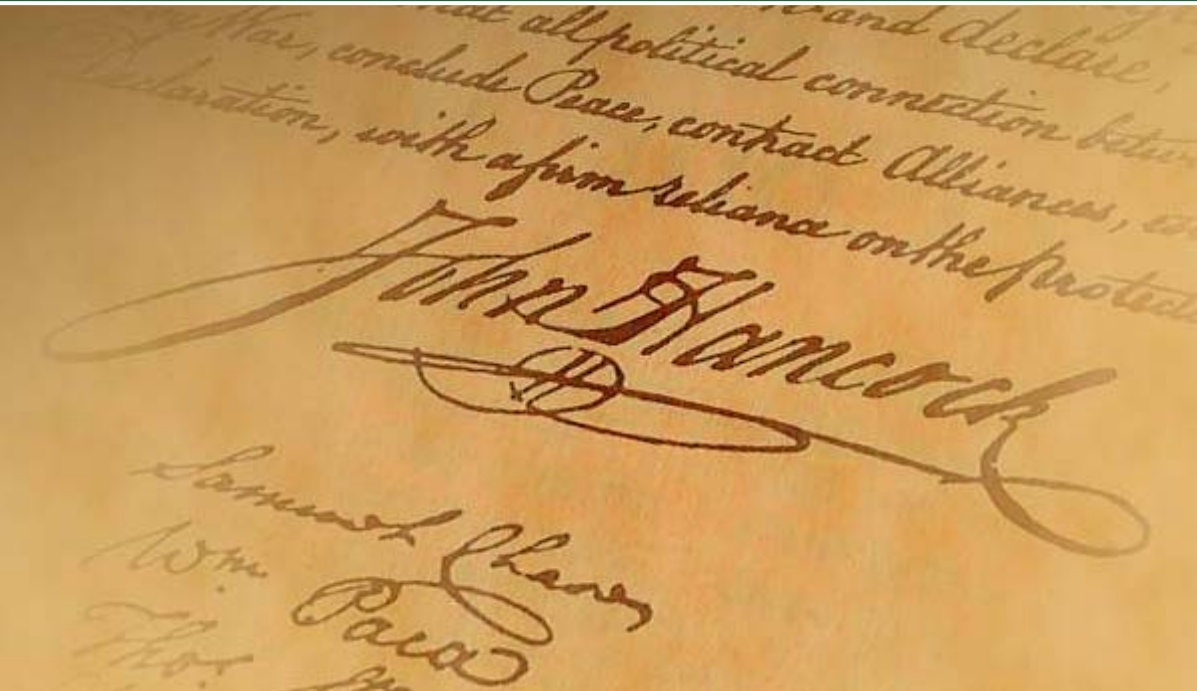 and declare,
that all political connection betw
War, conclude Peace, contract Alliances,
Declaration, with a firm reliance on the protect
John Hancock
Samuel Chase,
Wm. Paca
Thos